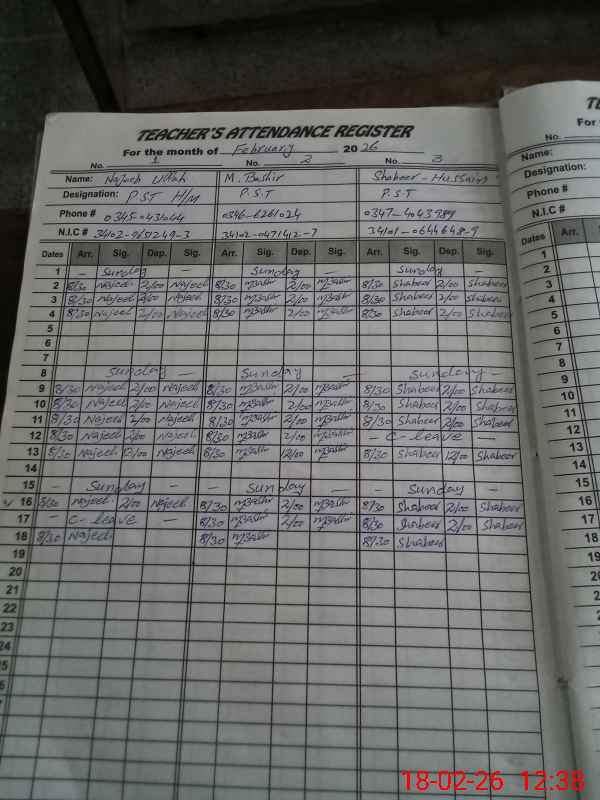 TEACHER'S ATTENDANCE REGISTER
For the month of February 2026
No. 1 No. 2 No. 3
Name: Najeeb Ullah M. Bashir Shabeer-Hussain
Designation: P.S.T H/M P.S.T P.S.T
Phone # 0346-6261024 0347-4043989
N.I.C # 34102-0471412-7 34101-0644648-9
Dates Arr. Sig. Dep. Sig. Arr. Sig. Dep. Sig. Arr. Sig. Dep. Sig.
1 - Sunday - Sunday - Sunday -
2 8/30 Najeeb 2/00 Najeeb 8/30 mBashir 2/00 mBashir 8/30 Shabeer 2/00 Shabeer
3 8/30 Najeeb 2/00 Najeeb 8/30 mBashir 2/00 mBashir 8/30 Shabeer 2/00 Shabeer
4 8/30 Najeeb 2/00 Najeeb 8/30 mBashir 2/00 mBashir 8/30 Shabeer 2/00 Shabeer
5
6
7
8 Sunday - Sunday - Sunday -
9 8/30 Najeeb 2/00 Najeeb 8/30 mBashir 2/00 mBashir 8/30 Shabeer 2/00 Shabeer
10 8/30 Najeeb 2/00 Najeeb 8/30 mBashir 2/00 mBashir 8/30 Shabeer 2/00 Shabeer
11 8/30 Najeeb 2/00 Najeeb 8/30 mBashir 2/00 mBashir 8/30 Shabeer 2/00 Shabeer
12 8/30 Najeeb 2/00 Najeeb 8/30 mBashir 2/00 mBashir - C-leave -
13 8/30 Najeeb 12/00 Najeeb 8/30 mBashir 12/00 mBashir 8/30 Shabeer 12/00 Shabeer
14
15 - Sunday - - Sunday - Sunday -
16 8/30 Najeeb 2/00 Najeeb 8/30 mBashir 2/00 mBashir 8/30 Shabeer 2/00 Shabeer
17 - C-leave - 8/30 mBashir 2/00 mBashir 8/30 Shabeer 2/00 Shabeer
18 8/30 Najeeb 8/30 mBashir 8/30 Shabeer
19
20
21
22
23
24
25
Name:
Designation:
Phone #
N.I.C #
Dates Arr.
1
2
3
4
5
6
7
8
9
10
11
12
13
14
15
16
17
18
19
20
21
22
23
24
25
26
27
18-02-26 12:38